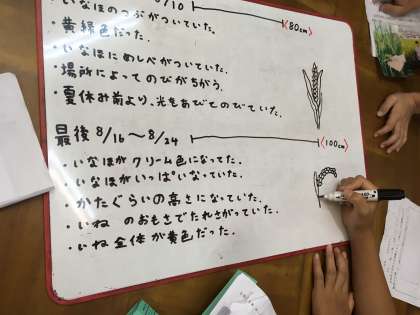 /10
いなほのつぶがついていた。
80cm
・黄緑色だった。
・いなほにめしべがついていた。
・場所によってのびがちがう。
・夏休み前より、光をあびてのびていた。
最後 8/16〜8/24
100cm
・いなほがクリーム色になってた。
・いなほがいっぱいなっていた。
・かたぐらいの高さになっていた。
・いね のおもさでたれさがっていた。
・いね全体が黄色だった。